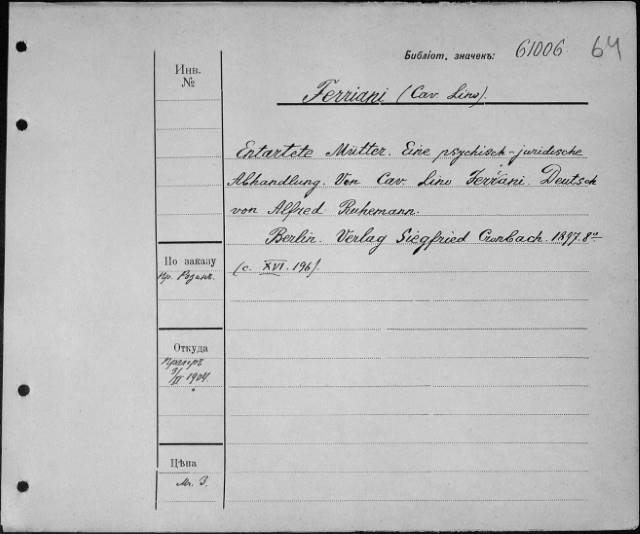 Библіот. значекъ: 61006 64
Инв.
№
Ferriani (Cav. Lino).
Entartete Mütter. Eine psychisch-juridische
Abhandlung. Von Cav. Lino Ferriani. Deutsch
von Alfred Ruhemann.
Berlin. Verlag Siegfried Cronbach. 1897. 8°
(c. XVI. 196).
По заказу
Пр. Розин.
Откуда
II 1904.
Цѣна
Mr. 3.